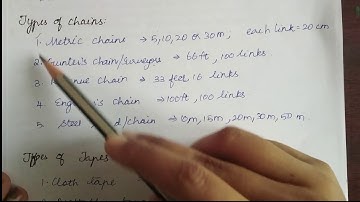 Types of chains:
1. Metric chains → 5, 10, 20 or 30m, each link = 20 cm
2. Gunter's chain/surveyors → 66ft, 100 links
3. chain → 33 feet 16 links
4. chain → 100ft, 100 links
5. Steel /chain → 10m, 15m, 20m, 30m, 50 m.
Types of Tapes
1. Cloth tape